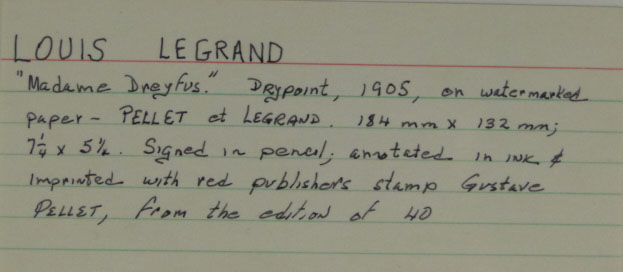 LOUIS LEGRAND
"Madame Dreyfus." Drypoint, 1905, on watermarked
paper - PELLET et LEGRAND. 184 mm x 132 mm;
7¼ x 5¼. Signed in pencil; annotated in ink &
imprinted with red publisher's stamp Gustave
PELLET, from the edition of 40